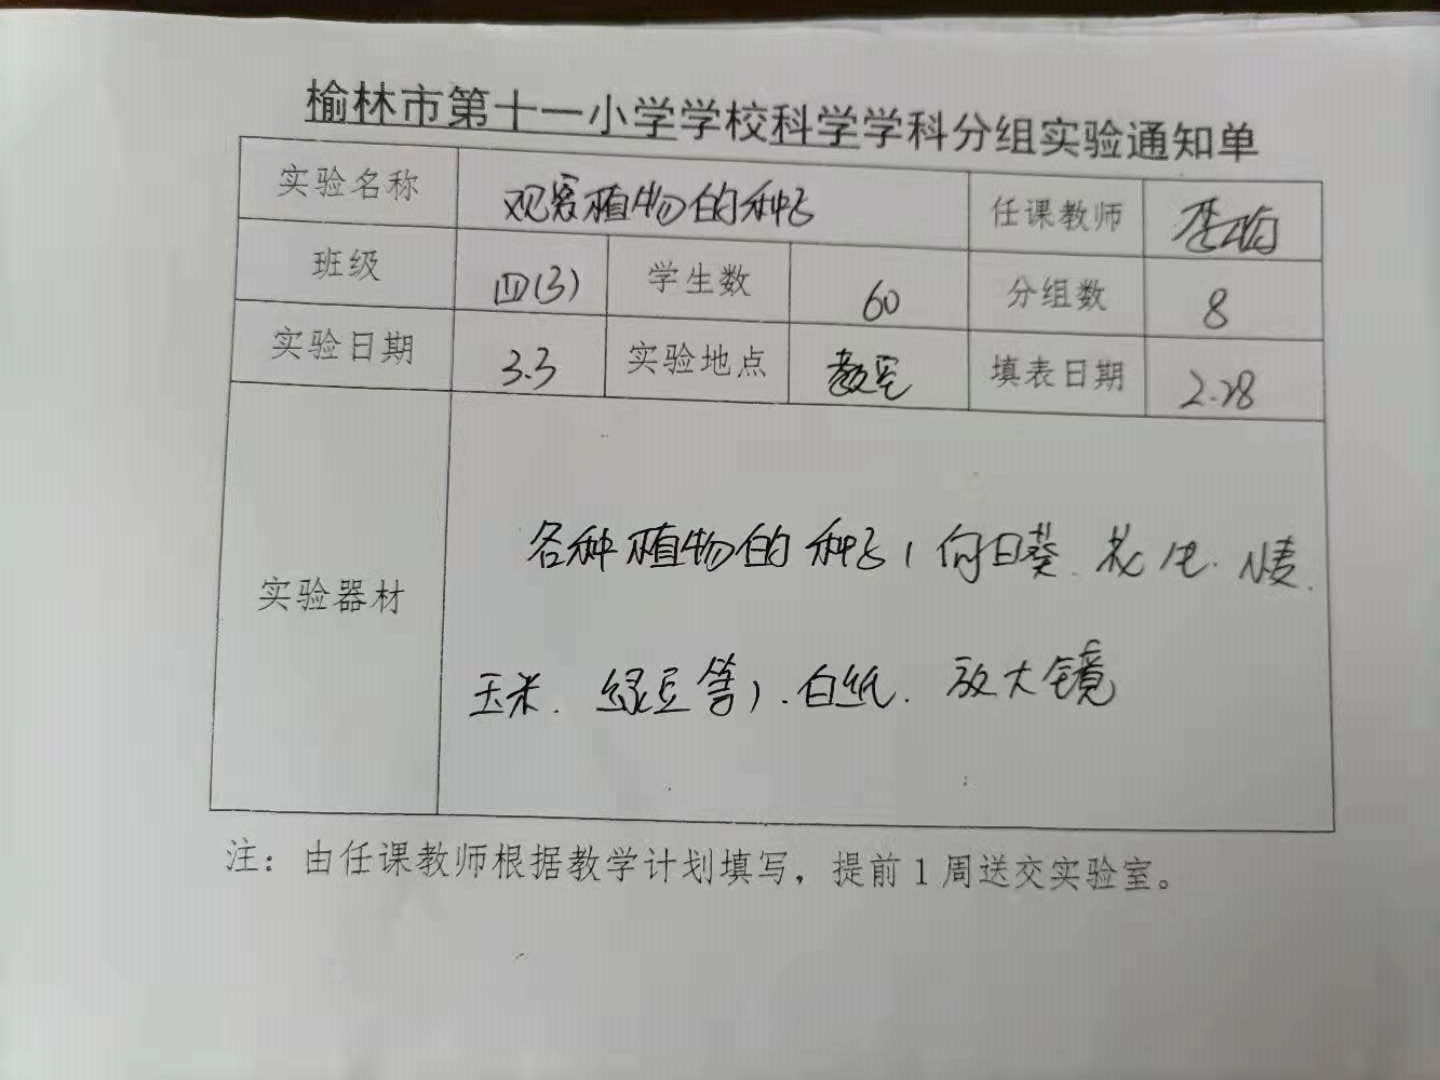 榆林市第十一小学学校科学学科分组实验通知单
实验名称 观察植物的种子 任课教师 李
班级 四(3) 学生数 60 分组数 8
实验日期 3.3 实验地点 教室 填表日期 2.28
实验器材
各种植物的种子(向日葵、花生、小麦、
玉米、绿豆等)、白纸、放大镜
注：由任课教师根据教学计划填写，提前1周送交实验室。